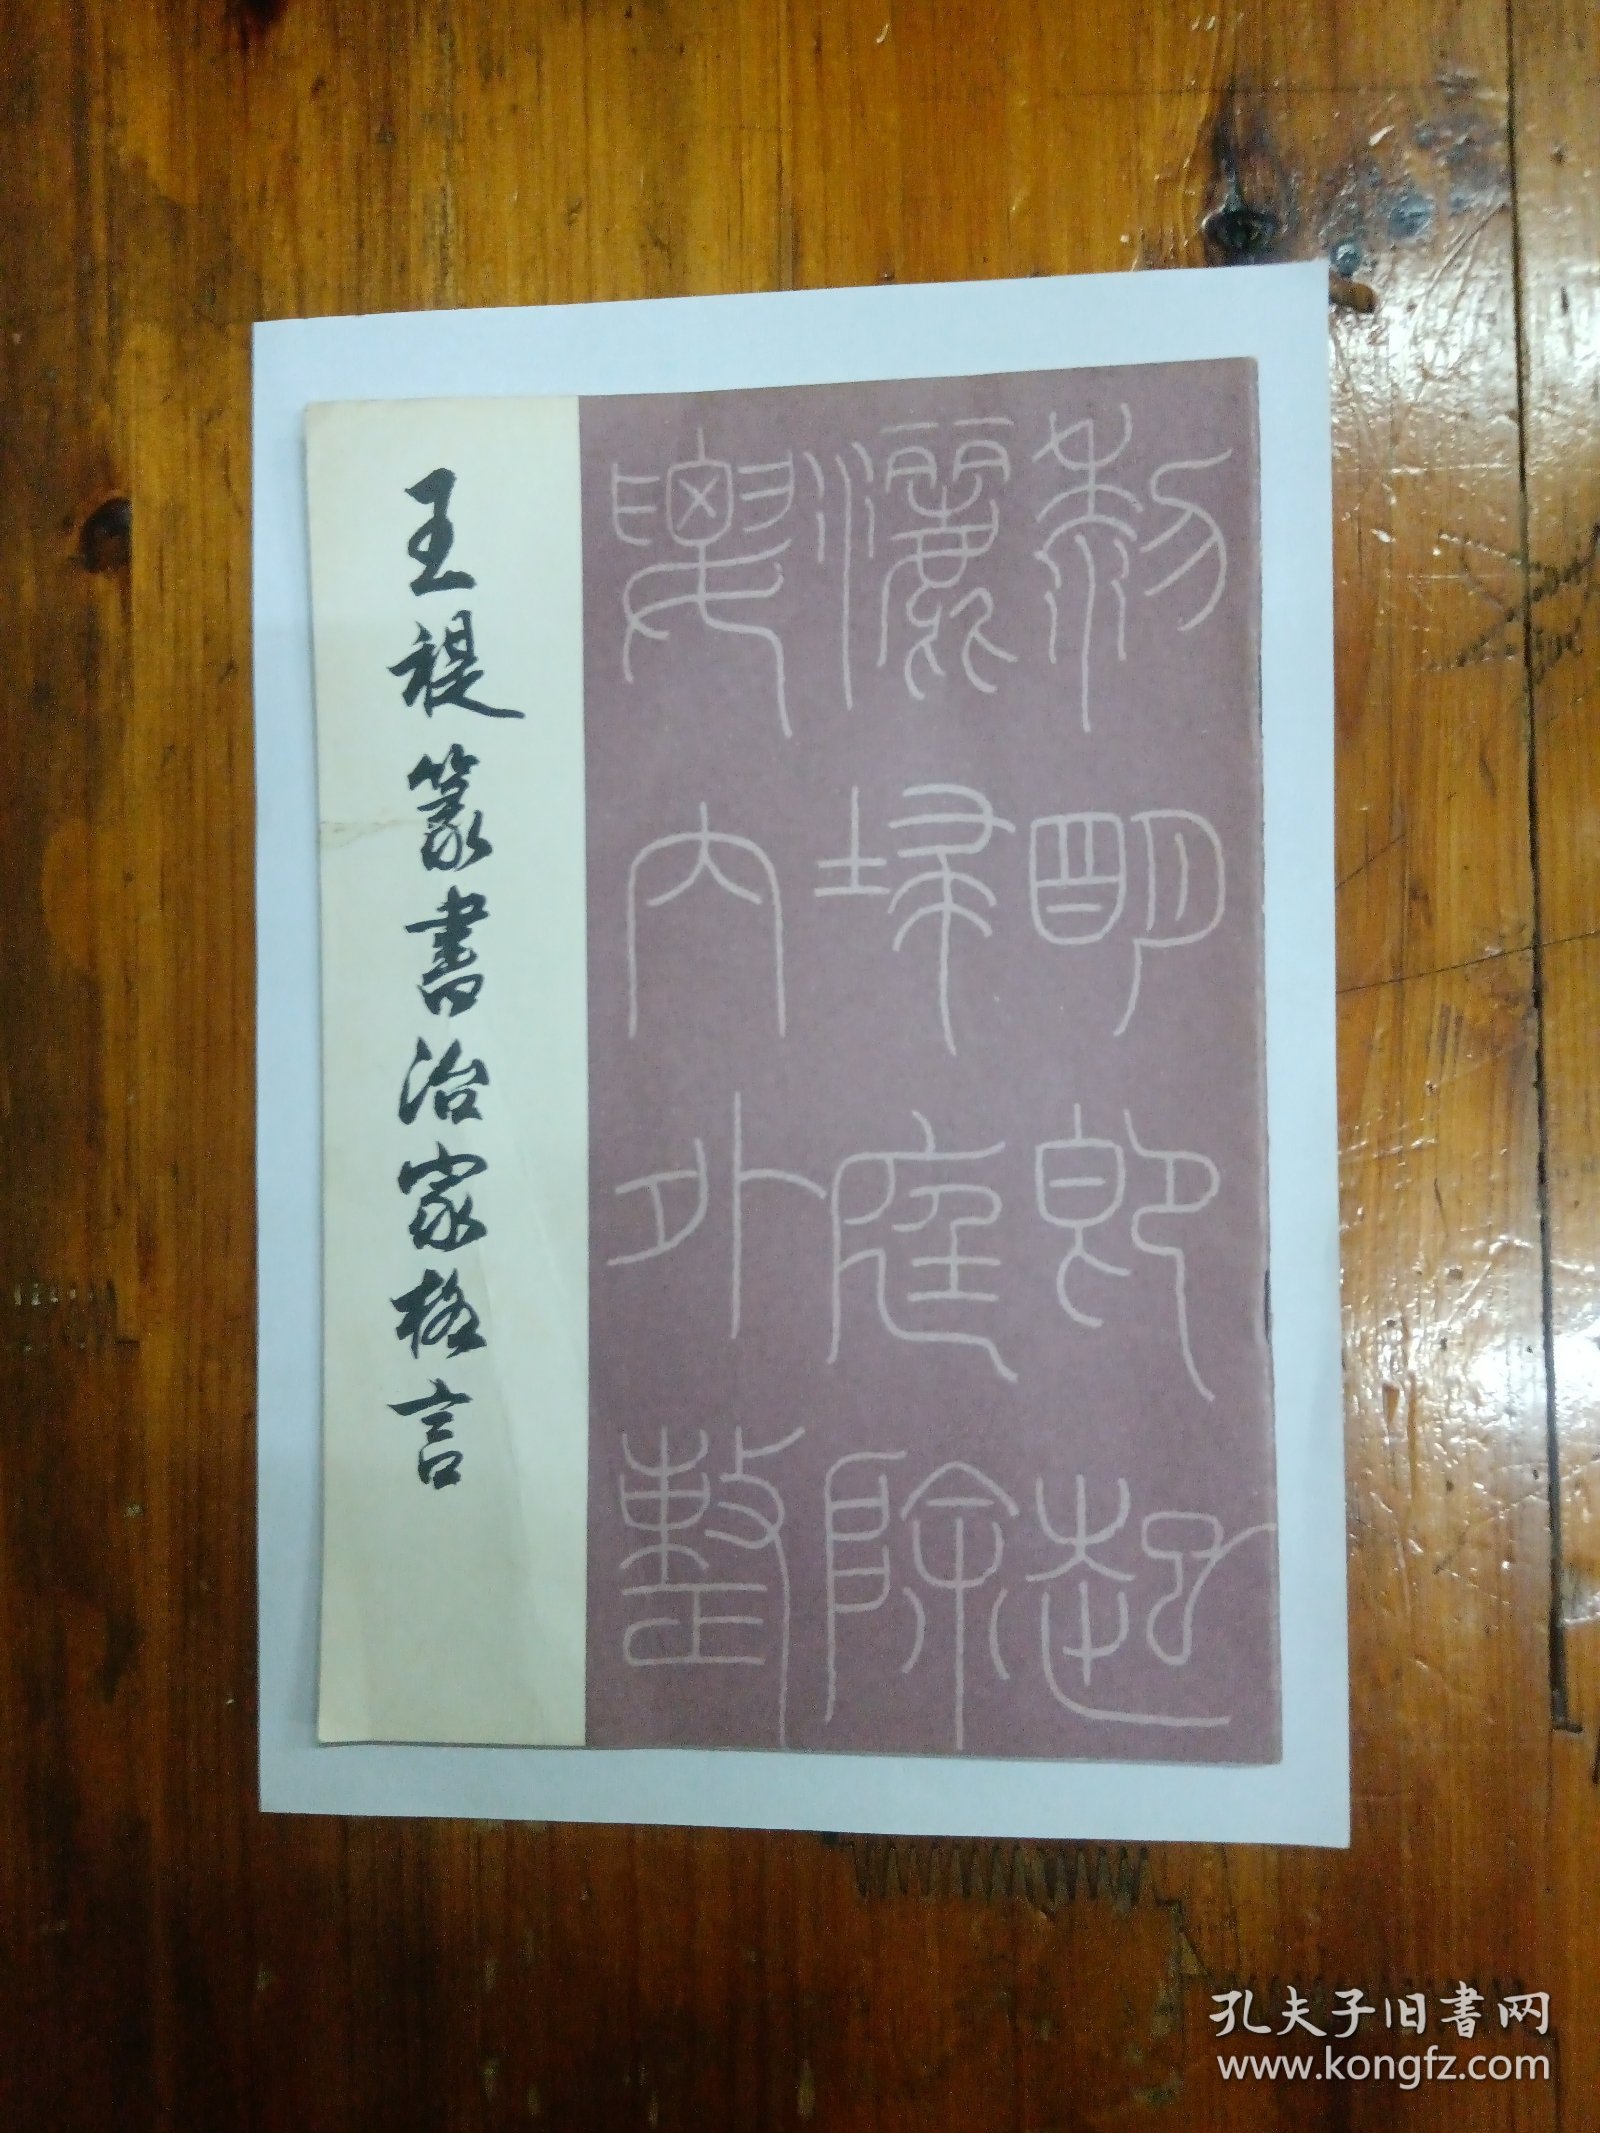 王禔篆書治家格言
黎明即起
灑埽庭除
要内外整
孔夫子旧书网
www.kongfz.com